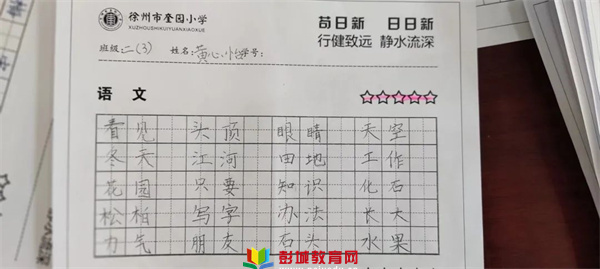 徐州市奎园小学
XUZHOUSHIKUIYUANXIAOXUE
苟日新 日日新
行健致远 静水流深
班级:二(3) 姓名:黄心怡 学号:
语文
看见 头顶 眼睛 天空
冬天 江河 田地 工作
花园 只要 知识 化石
松柏 写字 办法 长大
力气 朋友 石头 水果
彭城教育网